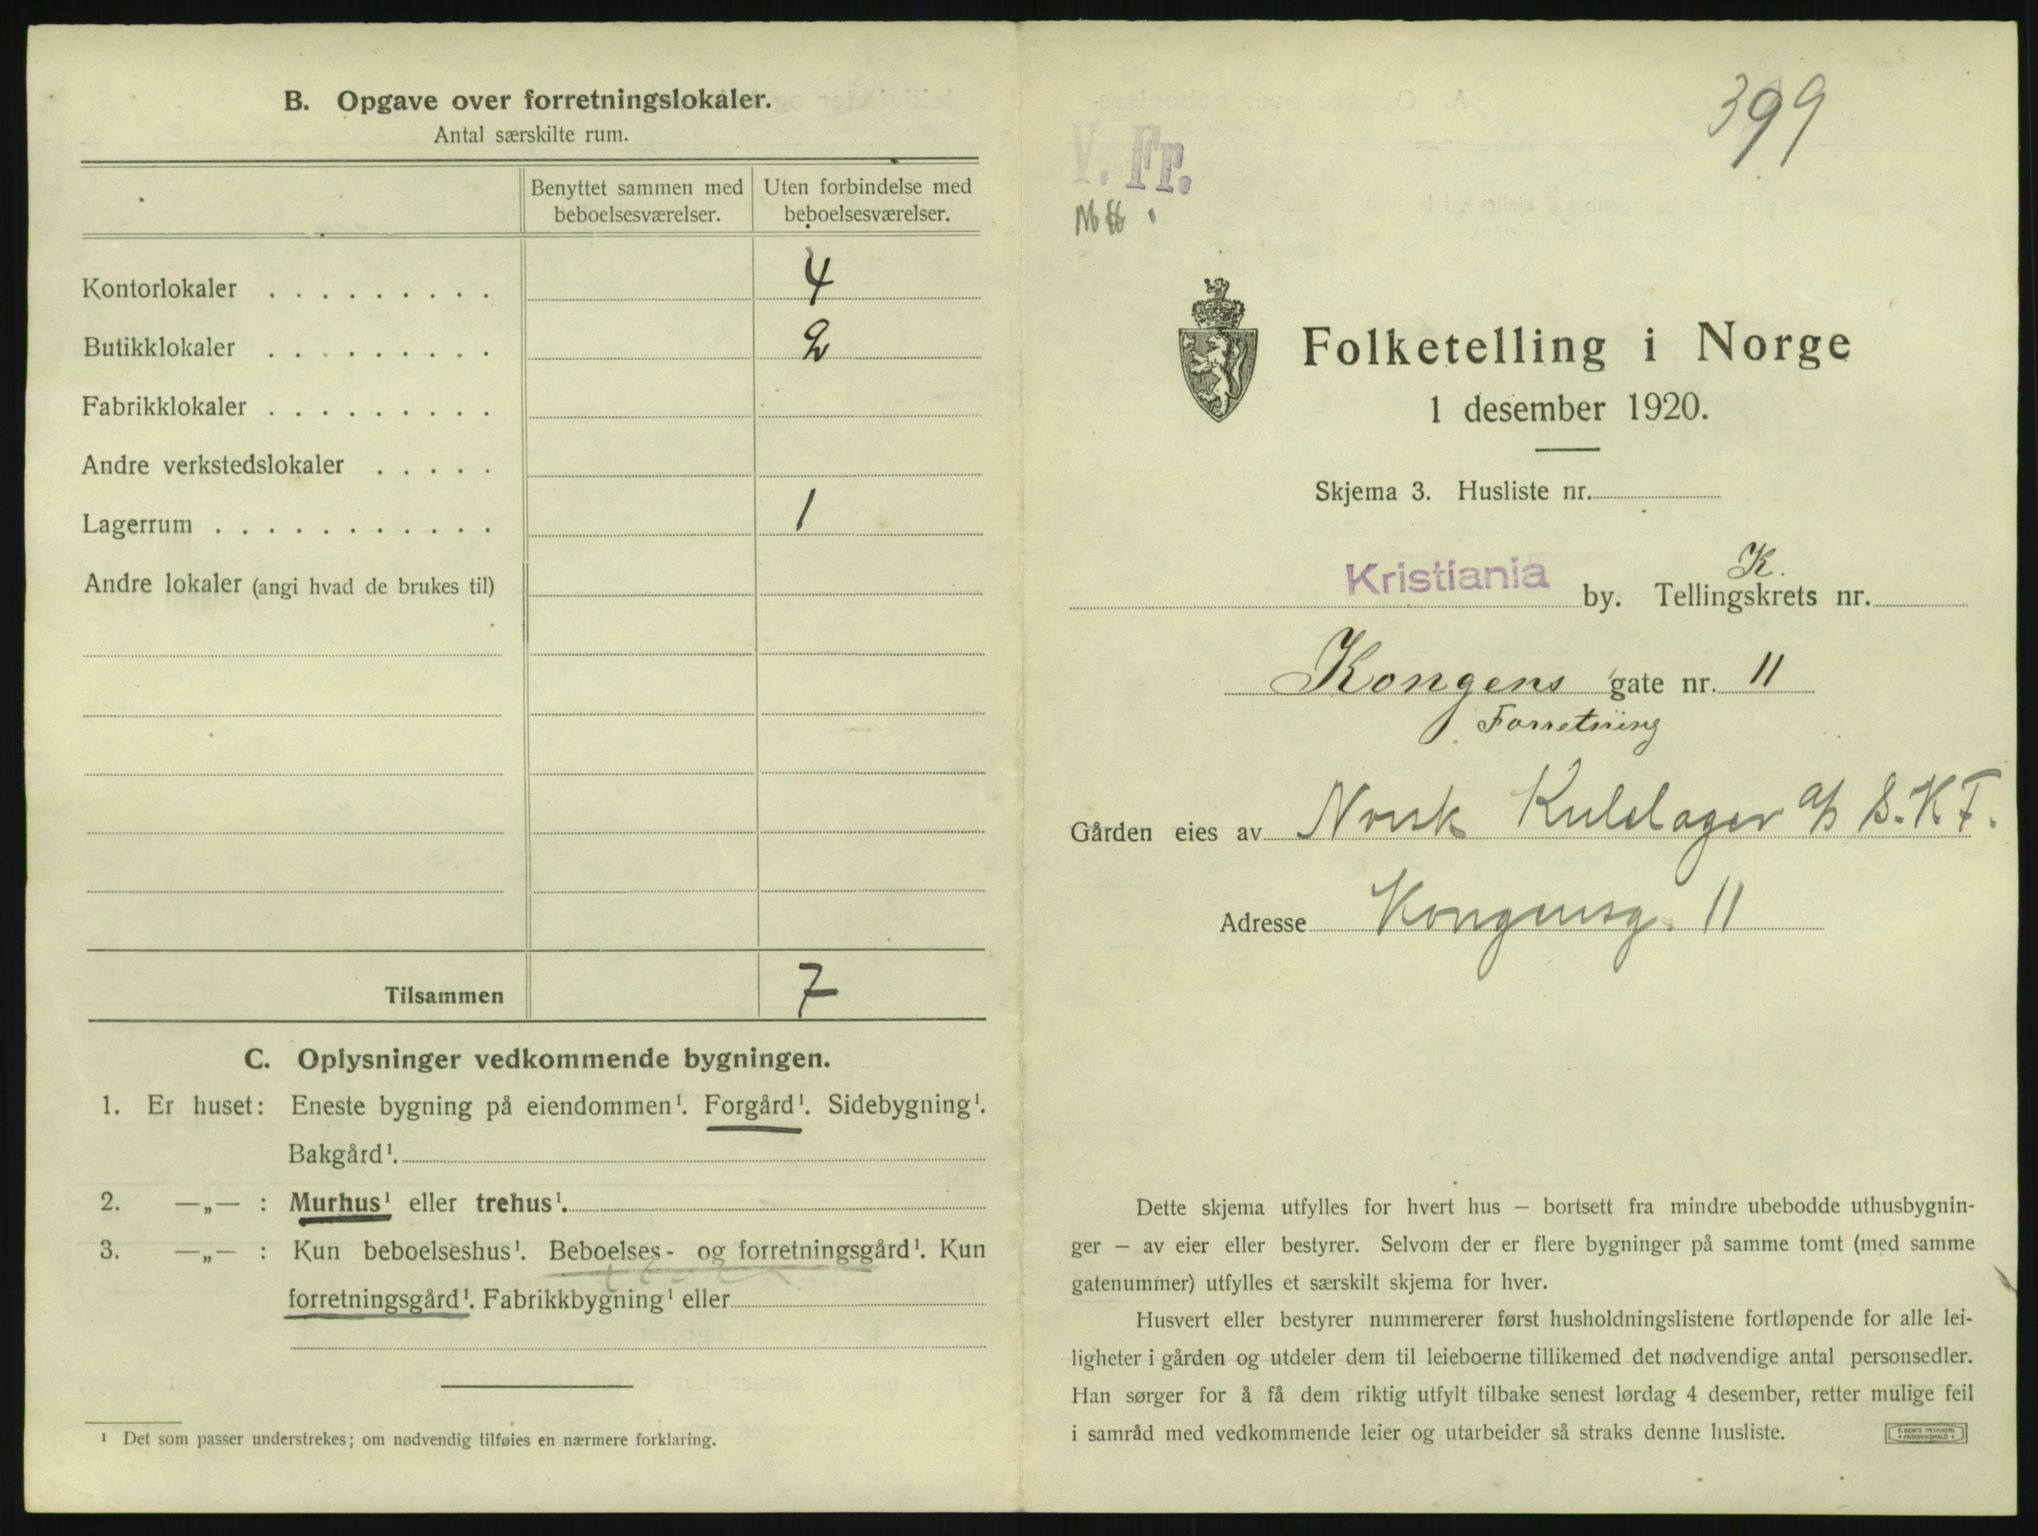 B. Opgave over forretningslokaler.
Antal særskilte rum.
Benyttet sammen med beboelsesværelser.
Uten forbindelse med beboelsesværelser.
Kontorlokaler . . . . . . . . . 4
Butikklokaler . . . . . . . . . 2
Fabrikklokaler . . . . . . . . .
Andre verkstedslokaler . . . . .
Lagerrum . . . . . . . . . . . 1
Andre lokaler (angi hvad de brukes til)
Tilsammen 7
C. Oplysninger vedkommende bygningen.
1. Er huset: Eneste bygning på eiendommen¹. Forgård¹. Sidebygning¹.
Bakgård¹.
2. —„— : Murhus¹ eller trehus¹.
3. —„— : Kun beboelseshus¹. Beboelses- og forretningsgård¹. Kun
forretningsgård¹. Fabrikkbygning¹ eller
¹ Det som passer understrekes; om nødvendig tilføies en nærmere forklaring.
399
V. Fr.
Folketelling i Norge
1 desember 1920.
Skjema 3. Husliste nr.
Kristiania by. Tellingskrets nr. K.
Kongens gate nr. 11
Forretning
Gården eies av Norsk Kulelager a/s S.K.F.
Adresse Kongensg. 11
Dette skjema utfylles for hvert hus — bortsett fra mindre ubebodde uthusbygnin-
ger — av eier eller bestyrer. Selvom der er flere bygninger på samme tomt (med samme
gatenummer) utfylles et særskilt skjema for hver.
Husvert eller bestyrer nummererer først husholdningslistene fortløpende for alle lei-
ligheter i gården og utdeler dem til leieboerne tillikemed det nødvendige antal personsedler.
Han sørger for å få dem riktig utfylt tilbake senest lørdag 4 desember, retter mulige feil
i samråd med vedkommende leier og utarbeider så straks denne husliste.